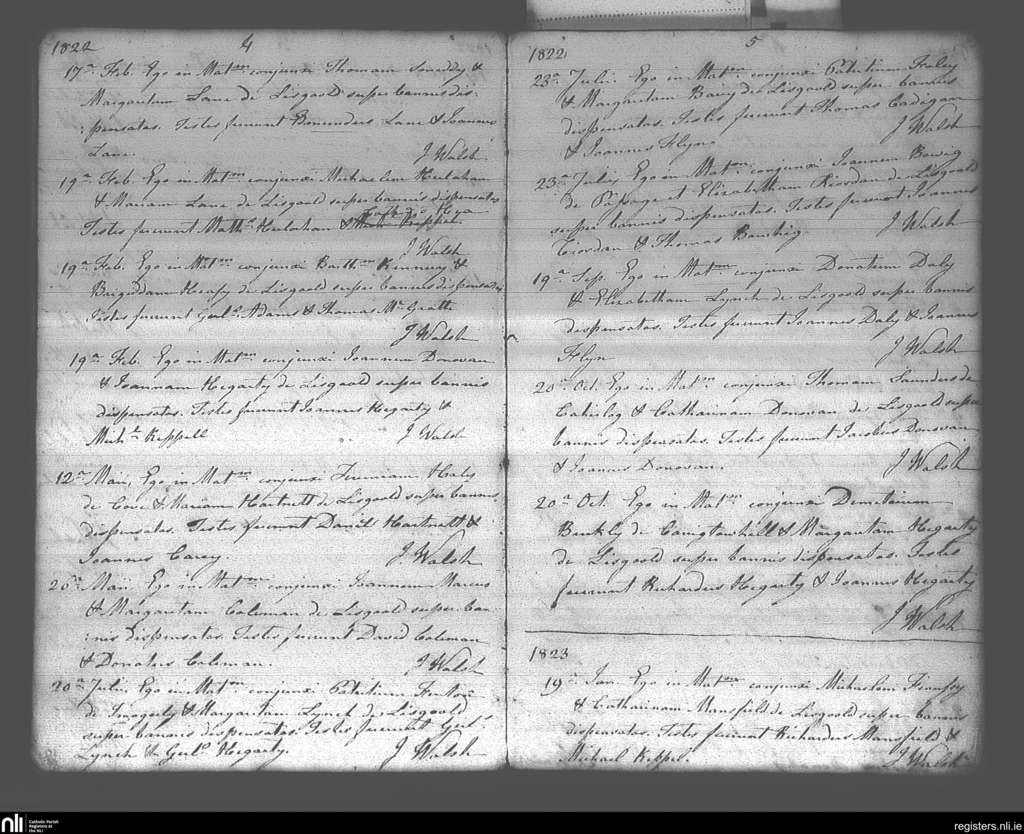 1822
4
17a Feb. Ego in Matm conjunxi Thomam &
Margaritam Lane de Lisgoold super bannis dis-
:pensatas. Testes fuerunt Lane & Joannes
Lane. J Walsh
19a Feb. Ego in Matm conjunxi Michaelem Hulahan
& Mariam Lane de Lisgoold super bannis dispensatas
Testes fuerunt Matths Hulahan &
J Walsh
19a Feb. Ego in Matm conjunxi Barthm Kinnery &
Brigiddam de Lisgoold super bannis dispensatas
Testes fuerunt Guls Adams & Thomas Mc Grath
J Walsh
19a Feb. Ego in Matm conjunxi Joannem Donovan
& Joannam Hegarty de Lisgoold super bannis
dispensatas. Testes fuerunt Joannes Hegarty &
Michl Keppell J Walsh
12a Maii, Ego in Matm conjunxi Jeremiam Haly
de Cove & Mariam Hartnett de Lisgoold super bannis
dispensatas. Testes fuerunt Daniel Hartnett &
Joannes Carey. J. Walsh
20a Maii Ego in Matm conjunxi Joannem Marcus
& Margaritam Coleman de Lisgoold super ban-
:nis dispensatas. Testes fuerunt David Coleman
& Donatus Coleman. J Walsh
20a Julii Ego in Matm conjunxi Patritium
de Imogeely & Margaritam Lynch de Lisgoold
super bannis dispensatas. Testes fuerunt Guls
Lynch & Guls Hegarty. J Walsh
1822
5
23a Julii Ego in Matm conjunxi Patritium
& Margaritam Barry de Lisgoold super bannis
dispensatas. Testes fuerunt Thomas Cadigan
& Joannes Flyn. J Walsh
23a Julii Ego in Matm conjunxi Joannem
de Passage et Elizabetham Riordan de Lisgoold
super bannis dispensatas. Testes fuerunt Joannes
Riordan & Thomas J Walsh
19a Sep. Ego in Matm conjunxi Donatum Daly
& Elizabetham Lynch de Lisgoold super bannis
dispensatas. Testes fuerunt Joannes Daly & Joannes
Flyn J Walsh
20a Oct. Ego in Matm conjunxi Thomam Saunders de
& Catharinam Donovan de Lisgoold super
bannis dispensatas. Testes fuerunt Jacobus Donovan
& Joannes Donovan. J Walsh
20a Oct. Ego in Matm conjunxi Demetrium
Buckly de & Margaritam Hegarty
de Lisgoold super bannis dispensatas. Testes
fuerunt Richardus Hegarty & Joannes Hegarty
J Walsh
1823
19a Jan. Ego in Matm conjunxi Michaelem
& Catharinam Mansfield de Lisgoold super bannis
dispensatas. Testes fuerunt Richardus Mansfield &
Michael Keppel. J Walsh
nli Catholic Parish
Registers at
the NLI
registers.nli.ie